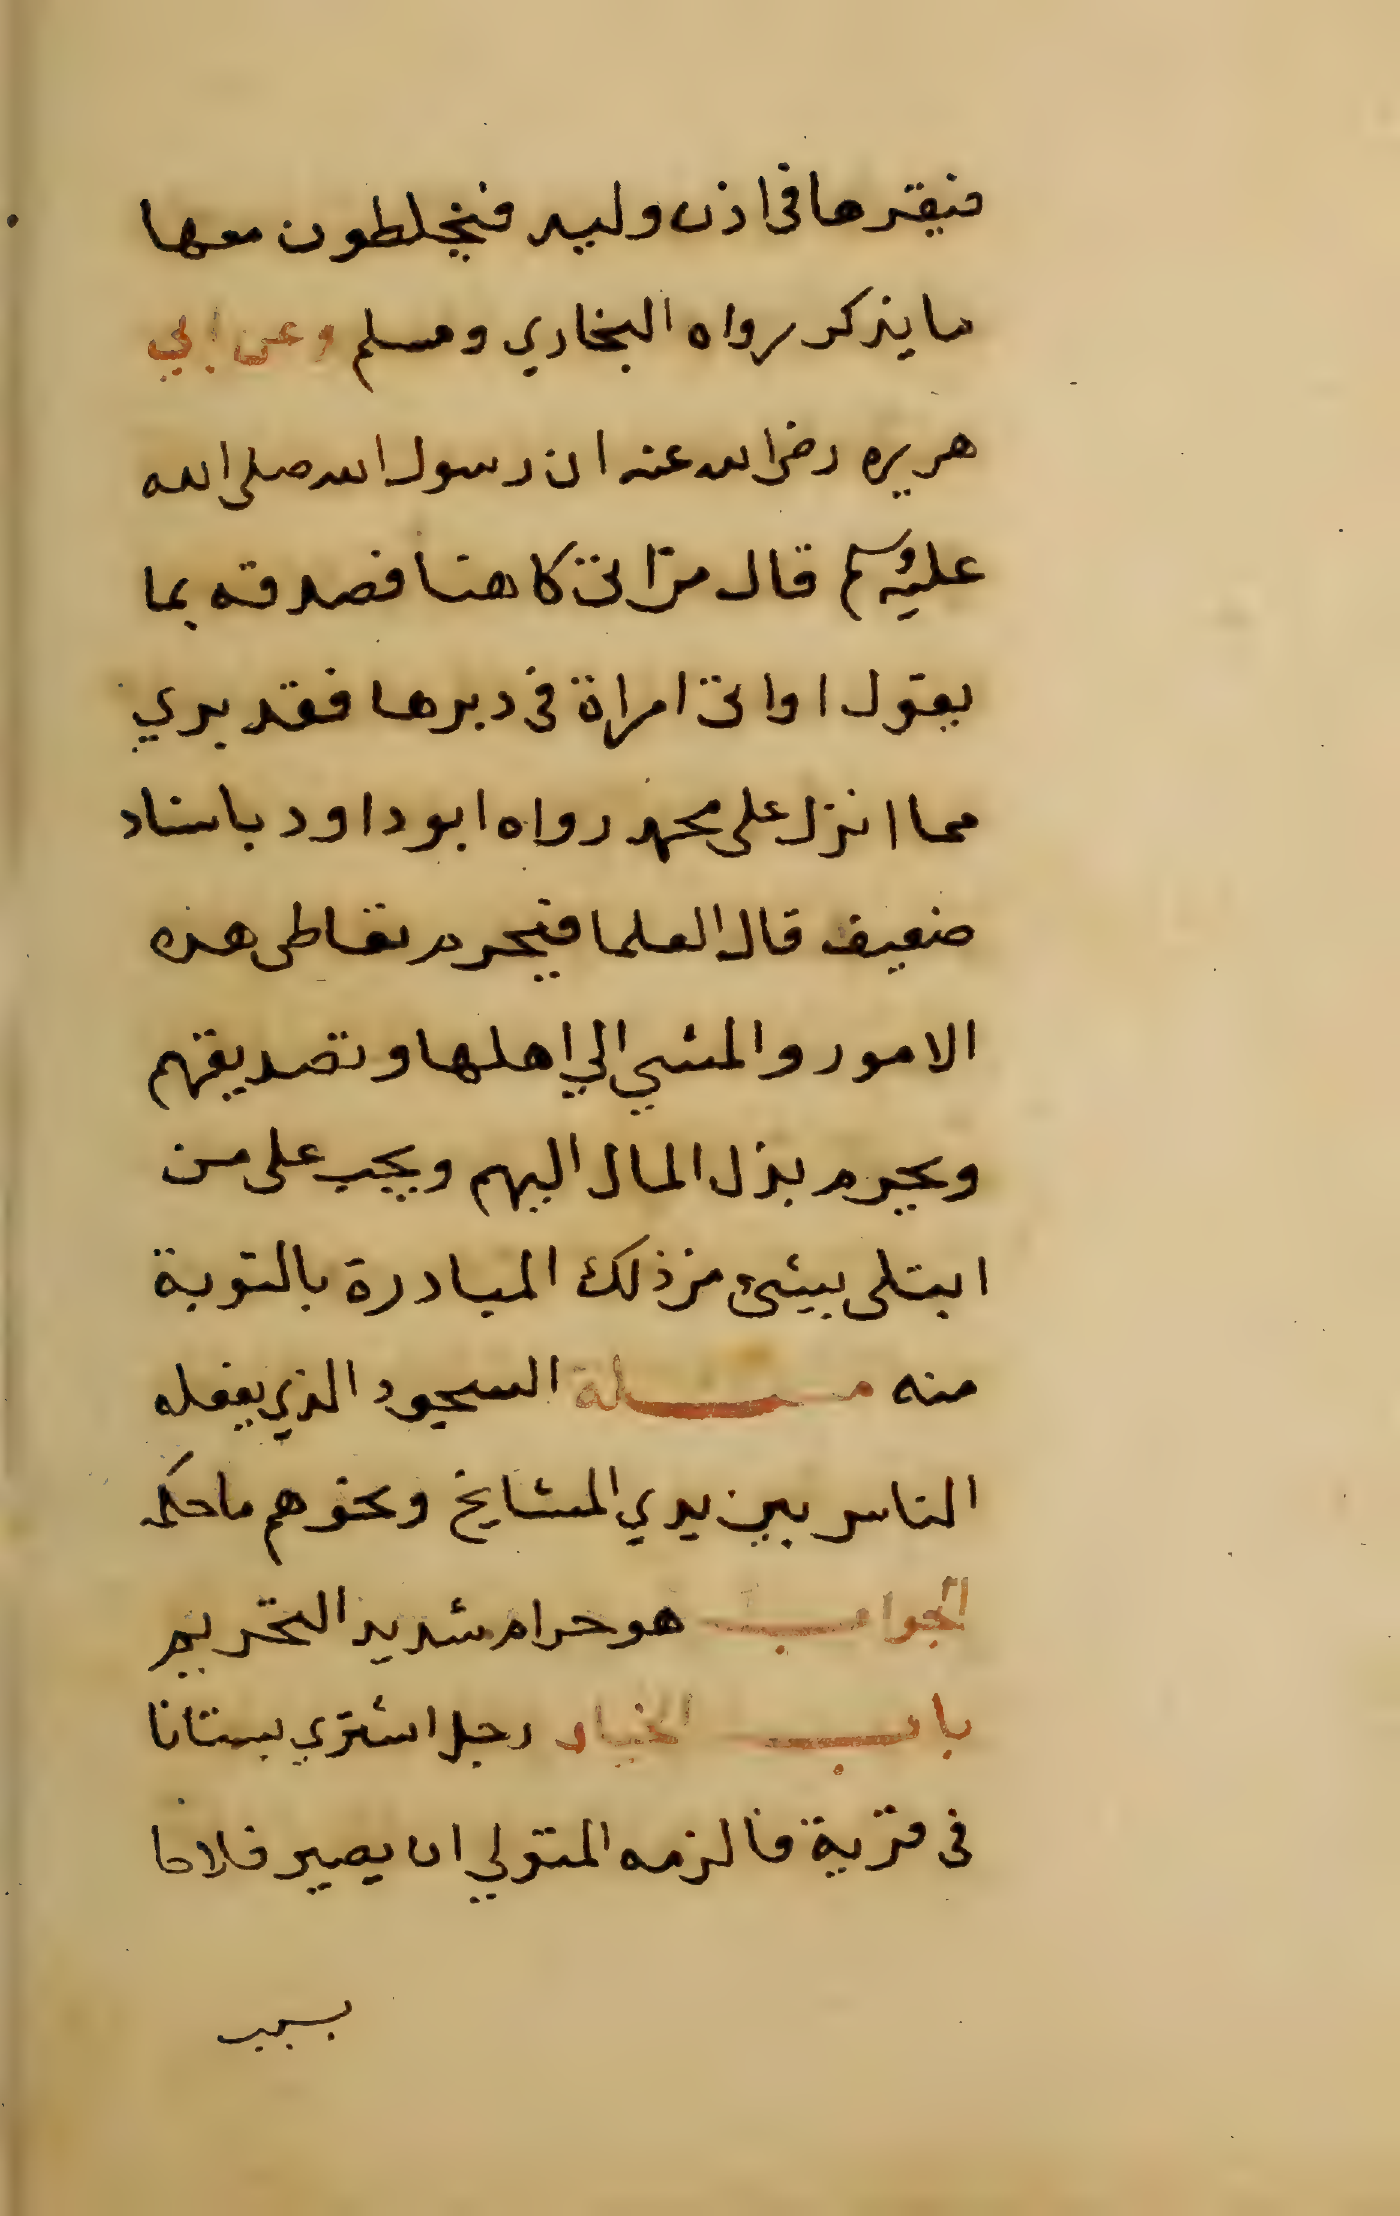 فيقرها في اذن وليه فيخلطون معها
ما يذكر رواه البخاري ومسلم وعن ابي
هريره رضى الله عنه ان رسول الله صلى الله
عليه وسلم قال من اتى كاهنا فصدقه بما
يقول او اتى امراة في دبرها فقد بري
مما انزل على محمد رواه ابو داود باسناد
ضعيف قال العلما فيحرم تعاطى هذه
الامور والمشي الي اهلها وتصديقهم
ويحرم بذل المال اليهم ويجب على من
ابتلى بشئ من ذلك المبادرة بالتوبة
منه مسئلة السجود الذي يفعله
الناس بين يدي المشايخ ونحوهم ما حكمه
الجواب هو حرام شديد التحريم
باب الخيار رجل اشتري بستانا
في قرية فالزمه المتولي ان يصير فلاحا
بسبب